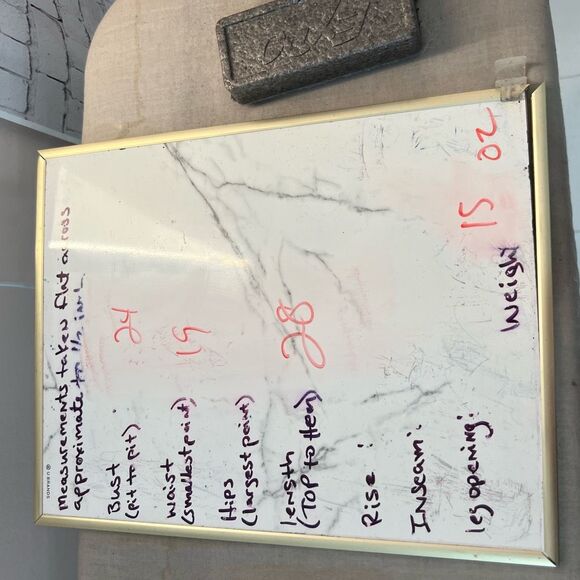 measurements taken flat across
approximate to 1/2 inch
Bust 24
(pit to pit)
waist 19
(smallest point)
Hips
(largest point)
length 28
(TOP to Hem)
Rise:
Inseam:
leg opening:
Weight 15 oz
U BRANDS